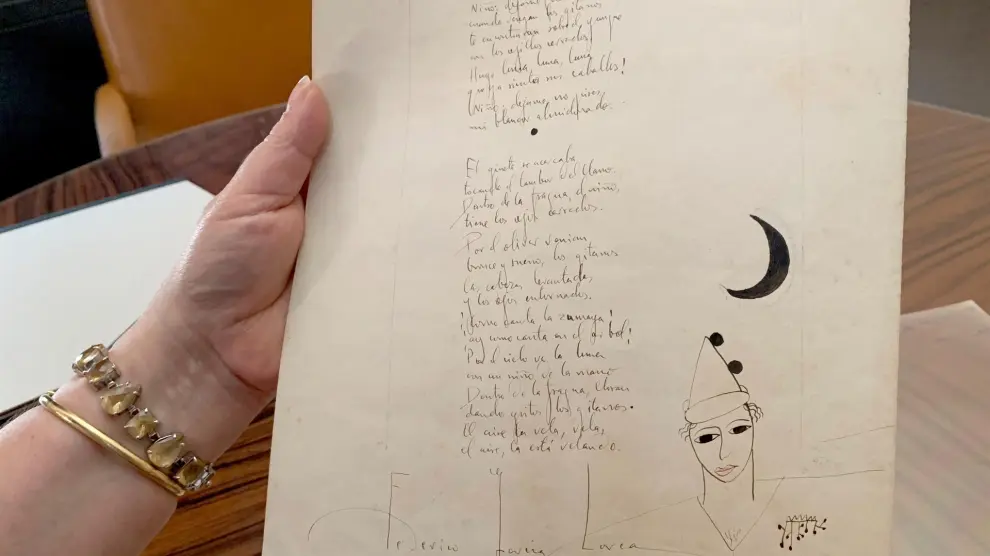 Niño, déjame
cuando vengan los gitanos
te encontrarán sobre el yunque
con los ojillos cerrados.
Huye luna, luna, luna
que ya siento sus caballos!
Niño, déjame, no pises,
mi blancor almidonado.
El jinete se acercaba
tocando el tambor del llano.
Dentro de la fragua, el niño,
tiene los ojos cerrados.
Por el olivar venían
bronce y sueño, los gitanos
Las cabezas levantadas
y los ojos entornados.
¡Cómo canta la zumaya!
¡ay como canta en el árbol!
Por el cielo va la luna
con un niño de la mano
Dentro de la fragua, lloran
dando gritos, los gitanos.
El aire la vela, vela,
el aire, la está velando.
Federico García Lorca